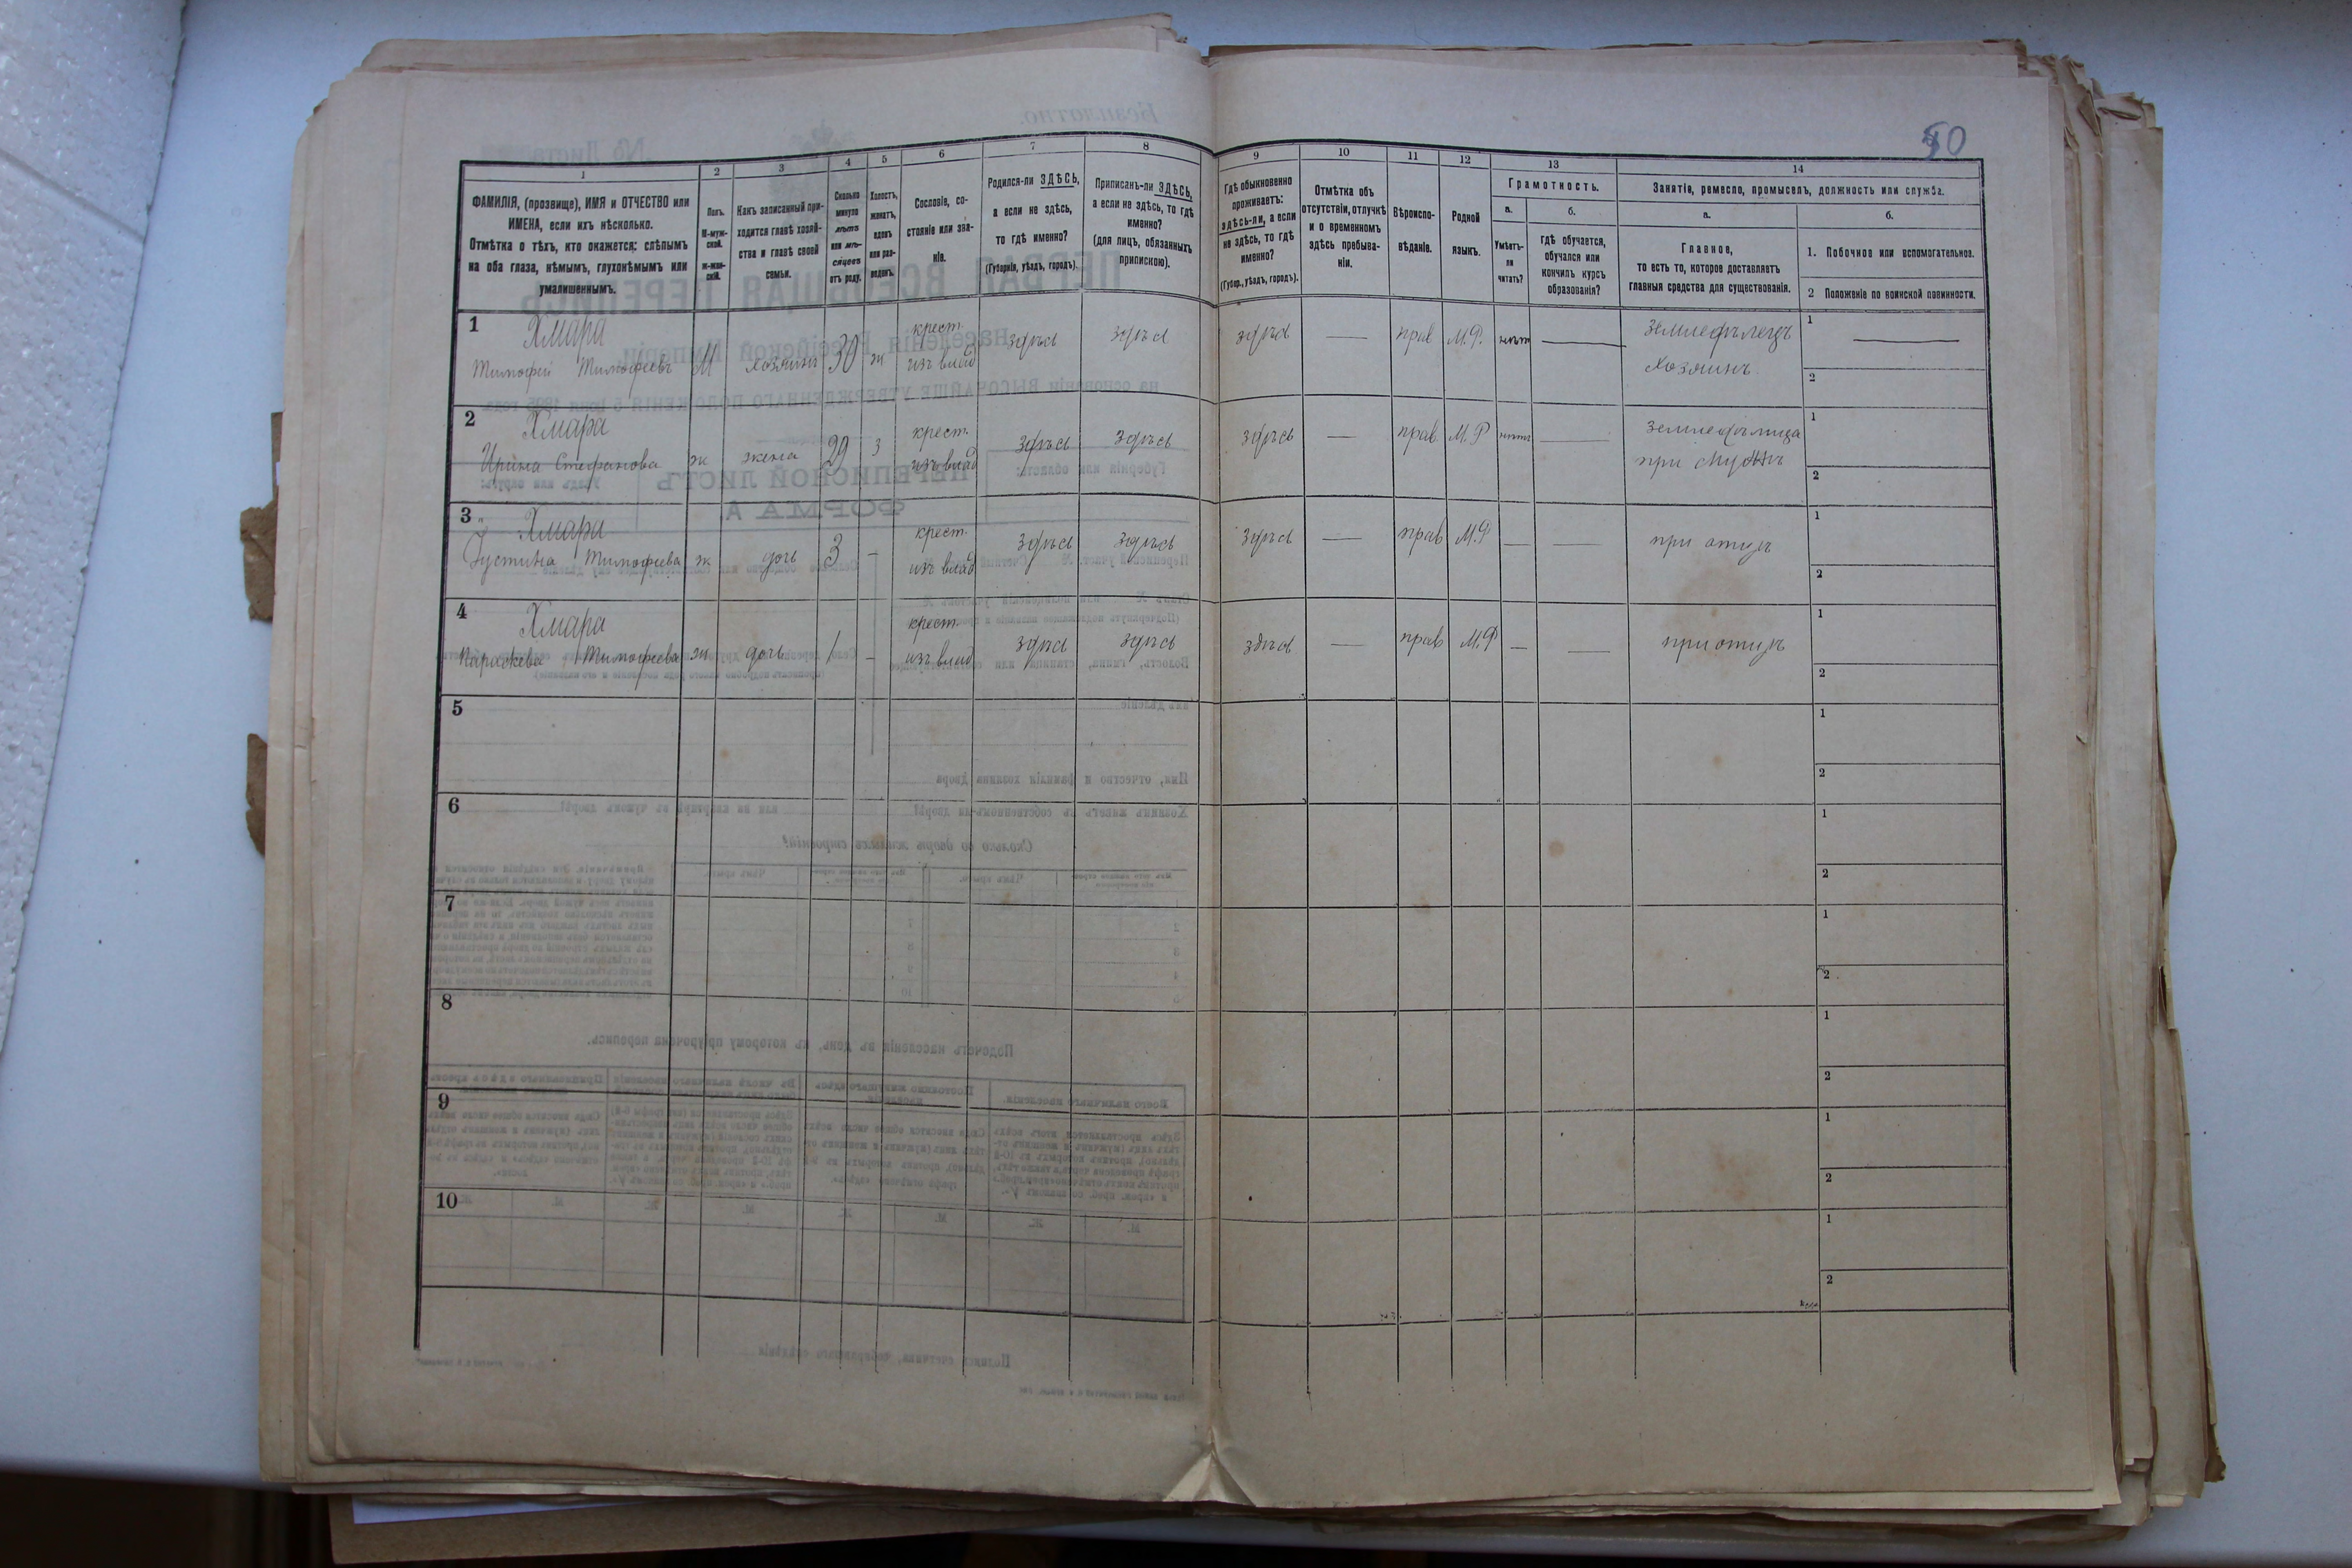 50
1
2
3
4
5
6
7
8
9
10
11
12
13
14
ФАМИЛІЯ, (прозвище), ИМЯ и ОТЧЕСТВО или
ИМЕНА, если ихъ нѣсколько.
Отмѣтка о тѣхъ, кто окажется: слѣпымъ
на оба глаза, нѣмымъ, глухонѣмымъ или
умалишеннымъ.
Полъ.
М-муж-
ской.
ж-жен-
скій.
Какъ записанный при-
ходится главѣ хозяй-
ства и главѣ своей
семьи.
Сколько
минуло
лѣтъ
или мѣ-
сяцевъ
отъ роду.
Холостъ,
женатъ,
вдовъ
или раз-
веденъ.
Сословіе, со-
стояніе или зва-
ніе.
Родился-ли ЗДѢСЬ,
а если не здѣсь,
то гдѣ именно?
(Губернія, уѣздъ, городъ).
Приписанъ-ли ЗДѢСЬ,
а если не здѣсь, то гдѣ
именно?
(для лицъ, обязанныхъ
припискою).
Гдѣ обыкновенно
проживаетъ:
здѣсь-ли, а если
не здѣсь, то гдѣ
именно?
(Губер., уѣздъ, городъ).
Отмѣтка объ
отсутствіи, отлучкѣ
и о временномъ
здѣсь пребыва-
ніи.
Вѣроиспо-
вѣданіе.
Родной
языкъ.
Грамотность.
а.
Умѣетъ-
ли
читать?
б.
гдѣ обучается,
обучался или
кончилъ курсъ
образованія?
Занятіе, ремесло, промыселъ, должность или служба.
а.
Главное,
то есть то, которое доставляетъ
главныя средства для существованія.
б.
1. Побочное или вспомогательное.
2 Положеніе по воинской повинности.
1 Хмара крест. здѣсь здѣсь здѣсь — прав М.Р. нѣтъ — земледѣлецъ 1 —
Тимофій Тимофеевъ М хозяинъ 30 ж изъ влад хозяинъ 2
2 Хмара крест. здѣсь здѣсь здѣсь — прав М.Р нѣтъ — земледѣлица 1
Ирина Стефанова ж жена 29 з изъ влад при мужѣ 2
3 Хмара крест. здѣсь здѣсь здѣсь — прав М.Р — — при отцѣ 1
Іустина Тимофеева ж дочь 3 – изъ влад 2
4 Хмара крест. здѣсь здѣсь здѣсь — прав М.Р — — при отцѣ 1
Параскева Тимофеева ж дочь 1 – изъ влад 2
5 1
2
6 1
2
7 1
2
8 1
2
9 1
2
10 1
2